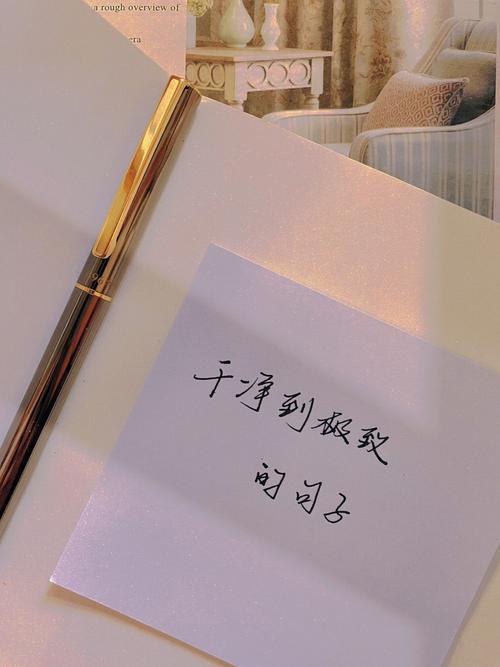 a rough overview of
era
干净到极致
的句子